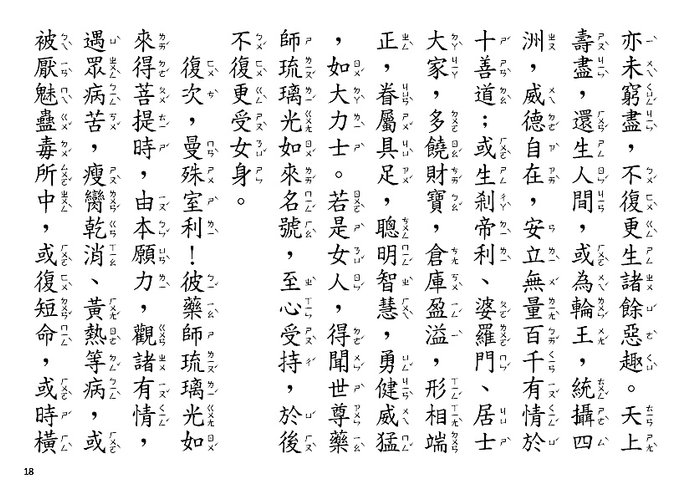 亦未窮盡，不復更生諸餘惡趣。天上
壽盡，還生人間，或為輪王，統攝四
洲，威德自在，安立無量百千有情於
十善道；或生剎帝利、婆羅門、居士
大家，多饒財寶，倉庫盈溢，形相端
正，眷屬具足，聰明智慧，勇健威猛
，如大力士。若是女人，得聞世尊藥
師琉璃光如來名號，至心受持，於後
不復更受女身。
復次，曼殊室利！彼藥師琉璃光如
來得菩提時，由本願力，觀諸有情，
遇眾病苦，瘦癵乾消、黃熱等病，或
被厭魅蠱毒所中，或復短命，或時橫
18